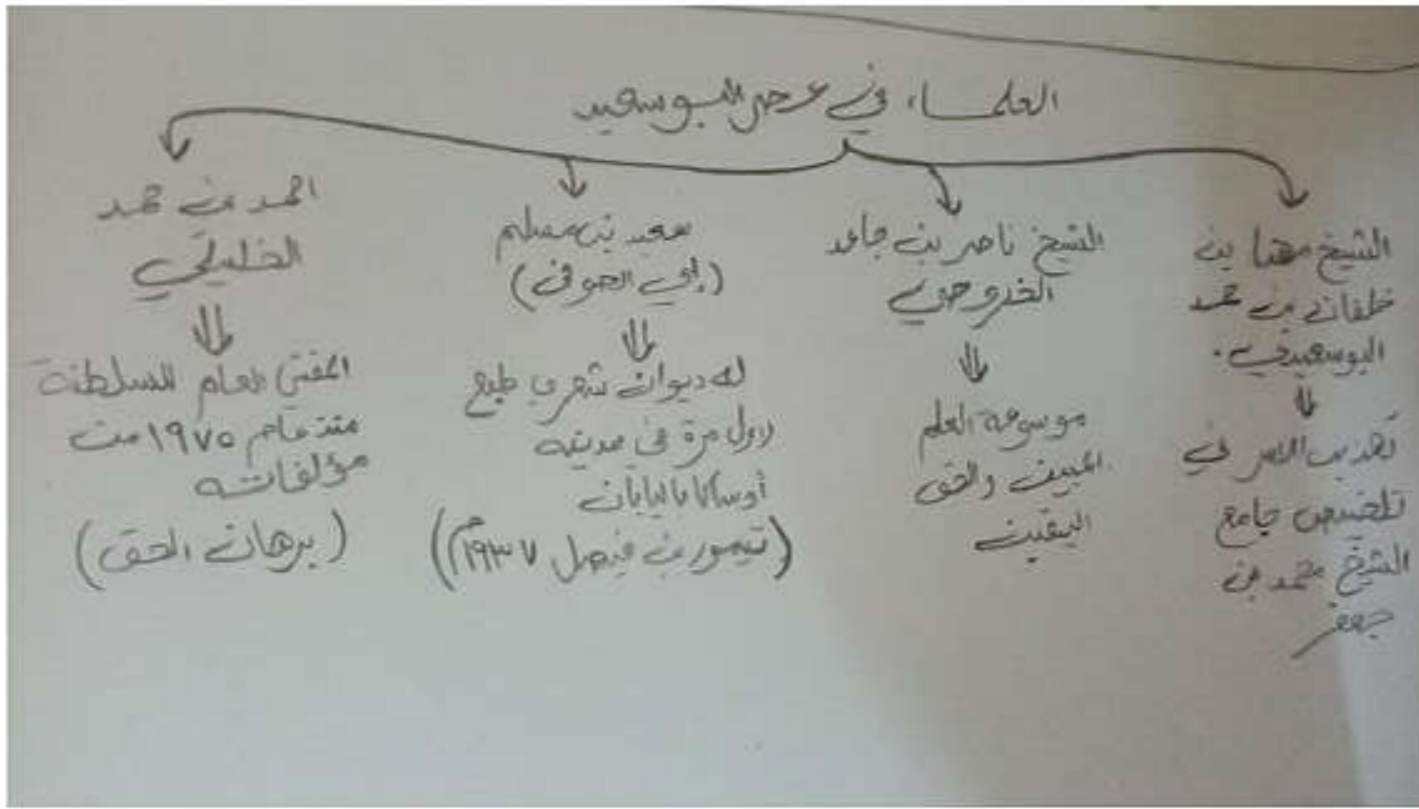 العلماء في عصر البوسعيد
الشيخ مهنا بن
خلفان بن محمد
البوسعيدي.
تهذيب الاثر في
تلخيص جامع
الشيخ محمد بن
جعفر
الشيخ ناصر بن جاعد
الخروصي
موسوعة العلم
المبين والحق
اليقين
سعيد بن مسلم
(ابي الصوفي)
له ديوان شعري طبع
لاول مرة في مدينه
أوساكا باليابان
(تيمور بن فيصل ١٩٣٧م)
احمد بن حمد
الخليلي
المفتي العام للسلطنة
منذ عام ١٩٧٥ من
مؤلفاته
(برهان الحق)